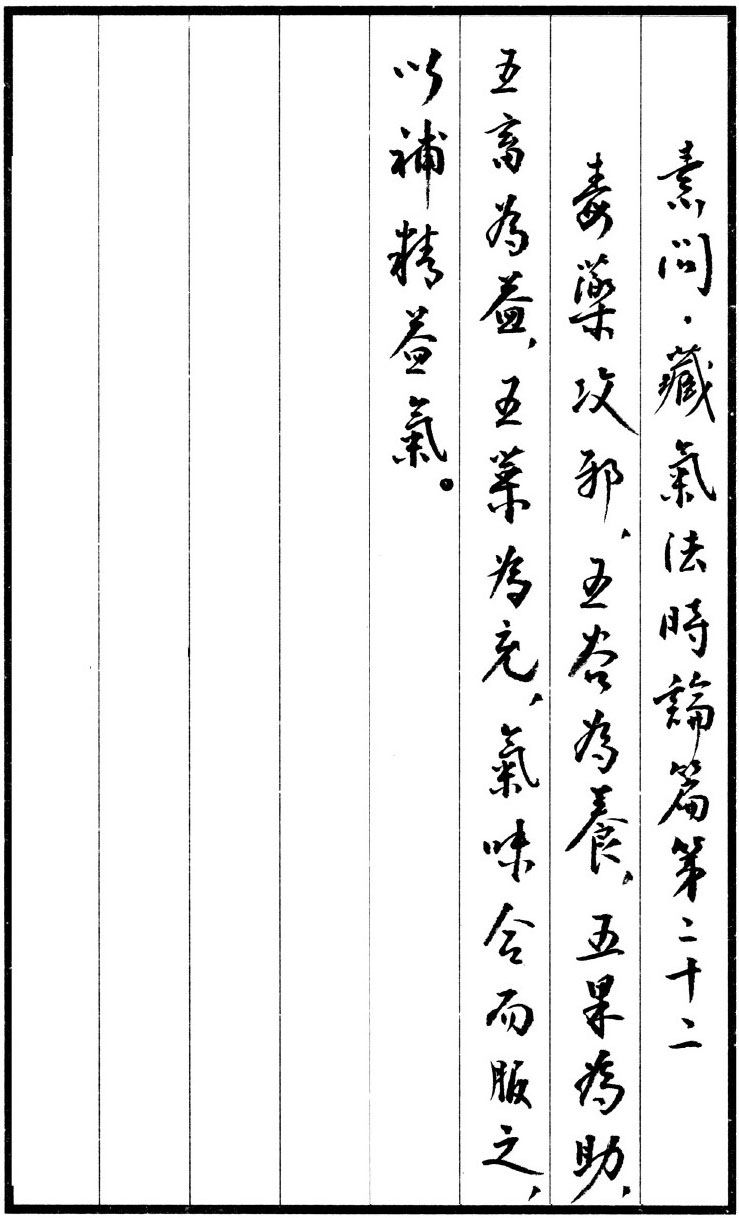 素問·藏氣法時論篇第二十二
毒藥攻邪、五谷為養、五果為助、
五畜為益、五菜為充、氣味合而服之、
以補精益氣。